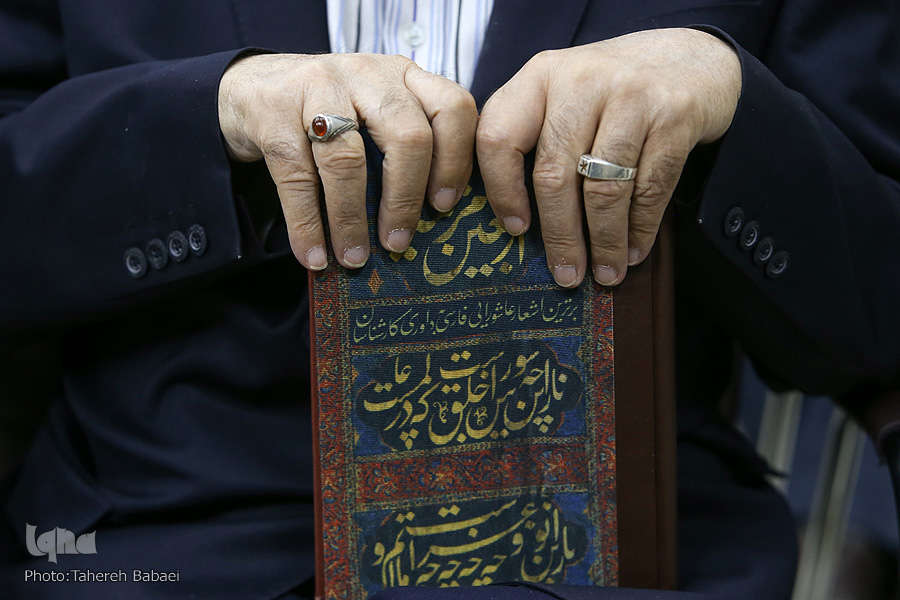 اربعین
برترین اشعار عاشورایی فارسی داوری کارشناسان
باز این چه شورش است که در خلق عالم است
باز این چه نوحه و چه عزا و چه ماتم است
iqna
Photo:Tahereh Babaei